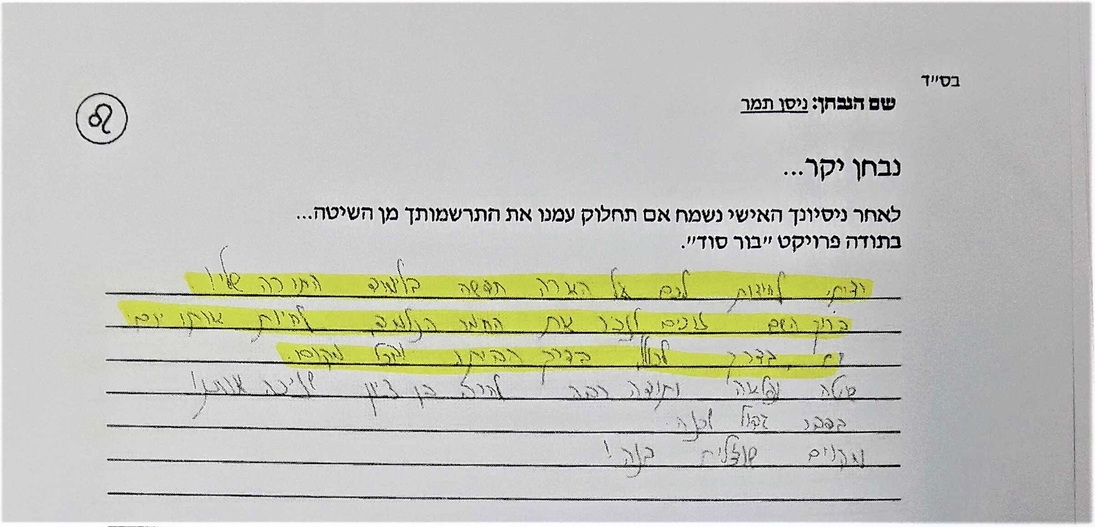 בס״ד
שם הנבחן: ניסן תמר
♌
נבחן יקר...
לאחר ניסיונך האישי נשמח אם תחלוק עמנו את התרשמותך מן השיטה...
בתודה פרויקט ״בור סוד״.
רציתי להודות לכם על הארה חדשה בלימוד התורה שלי!
ברוך השם זוכים לזכור את החומר הנלמד לחיות אותו יום
יום בדרך לכולל בדרך הביתה ובכל מקום.
שיטה נפלאה ותודה רבה להרב בן ציון שזיכה אותנו!
בדבר גדול כזה
מקווים שנצליח בזה!